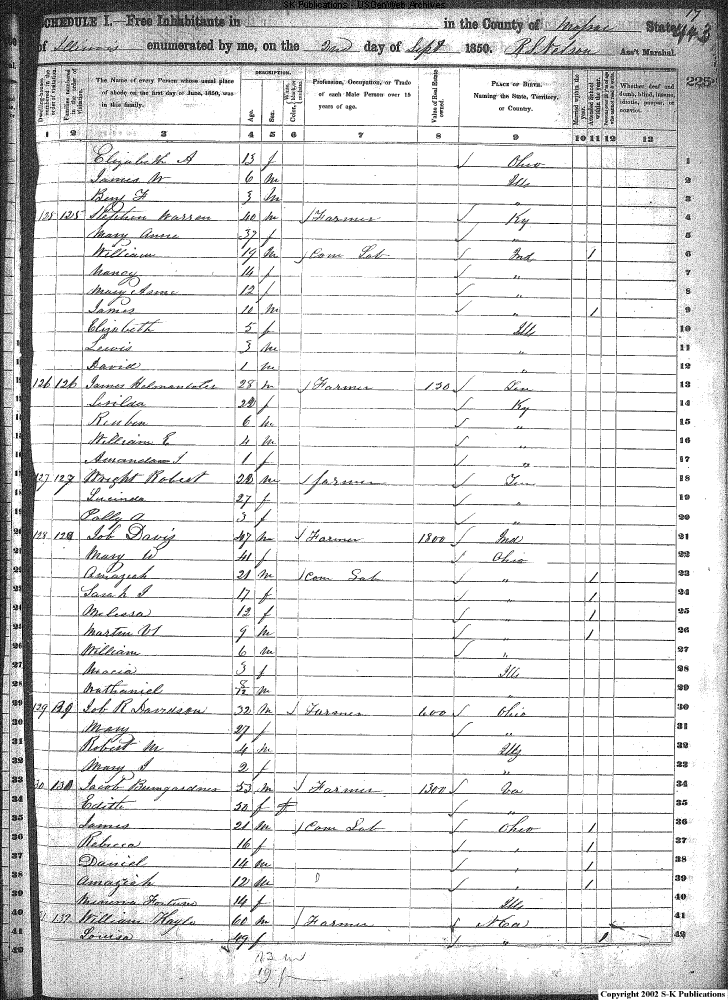 S-K Publications - USGenWeb Archives
17
SCHEDULE I.—Free Inhabitants in in the County of Massac State
of Illinois enumerated by me, on the 2nd day of Sept 1850. Ass't Marshal.
443
225
Dwelling-houses numbered in the order of visitation.
Families numbered in the order of visitation.
The Name of every Person whose usual place of abode on the first day of June, 1850, was in this family.
DESCRIPTION.
Age.
Sex.
Color, White, black, or mulatto.
Profession, Occupation, or Trade of each Male Person over 15 years of age.
Value of Real Estate owned.
PLACE OF BIRTH. Naming the State, Territory, or Country.
Married within the year.
Attended School within the year.
Whether deaf and dumb, blind, insane, idiotic, pauper, or convict.
1 2 3 4 5 6 7 8 9 10 11 12 13
Elizabeth A 13 f Ohio 1
James W 6 m Ills 2
Benj F 3 m " 3
125 125 Stephen Warren 40 m Farmer Ky 4
Mary Anne 37 f " 5
William 19 m Com Lab Ind 1 6
Nancy 14 f " 7
Mary Asme 12 f " 8
James 10 m " 1 9
Elizabeth 5 f Ills 10
Lewis 3 m " 11
David 1 m " 12
126 126 James 28 m Farmer 130 Ten 13
22 f Ky 14
Reuben 6 m " 15
William E 4 m " 16
1 f " 17
127 127 Wright Robert 22 m farmer Ten 18
Lucinda 27 f " 19
Polly A 3 f " 20
128 128 Job Davis 47 m Farmer 1800 Ind 21
Mary W 41 f Ohio 22
Amaziah 21 m Com Lab " 1 23
Sarah J 17 f " 1 24
Melissa 12 f " 1 25
Martin 9 m " 1 26
William 6 m " 27
3 f Ills 28
Nathaniel m " 29
129 129 Job R Davidson 32 m Farmer 600 Ohio 30
Mary 27 f " 31
Robert M 4 m Ills 32
Mary J 2 f " 33
130 130 Jacob Bumgardner 53 m Farmer 1300 Va 34
Edith 50 f " 35
James 21 m Com Lab Ohio 1 36
Rebecca 16 f " 1 37
Daniel 14 m " 1 38
Amaziah 12 m " 1 39
Minerva Fortune 14 f Ills 40
132 William Hayle 60 m Farmer 41
Louisa 49 f " 1 42
23 m
19 f
Copyright 2002 S-K Publications